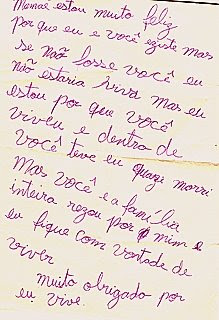 Mamae estou muito feliz
por que eu e você existe mas
se não fosse você eu
não estaria viva mas eu
estou por que você
viveu e dentro de
você teve eu quaze morri
Mas você e a família
inteira rezou por mim e
eu fique com vontade de
viver
muito obrigado por
eu vive.